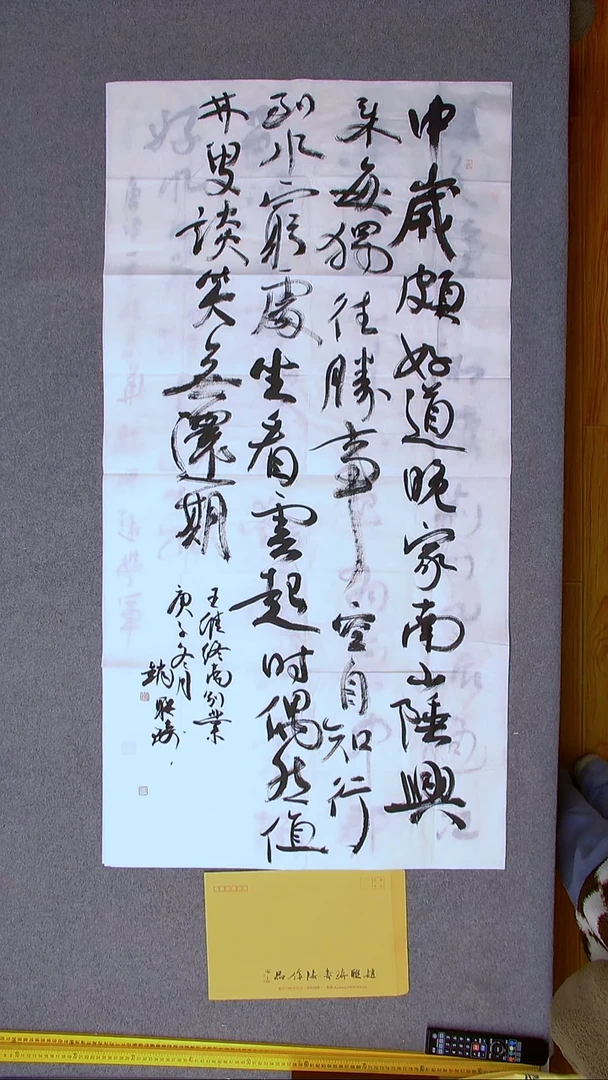 中歲頗好道晚家南山陲興
来每獨往勝事空自知行
到水窮處坐看雲起时偶然值
林叟談笑無還期
王維终南别業
庚子冬月